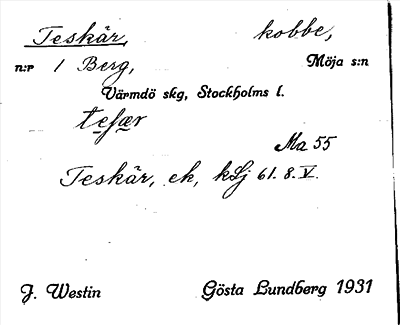 Teskär, kobbe,
n:r 1 Berg, Möja s:n
Värmdö skg, Stockholms l.
tesær
Ma 55
Teskär, ek, kSj 61. 8. V.
J. Westin Gösta Lundberg 1931